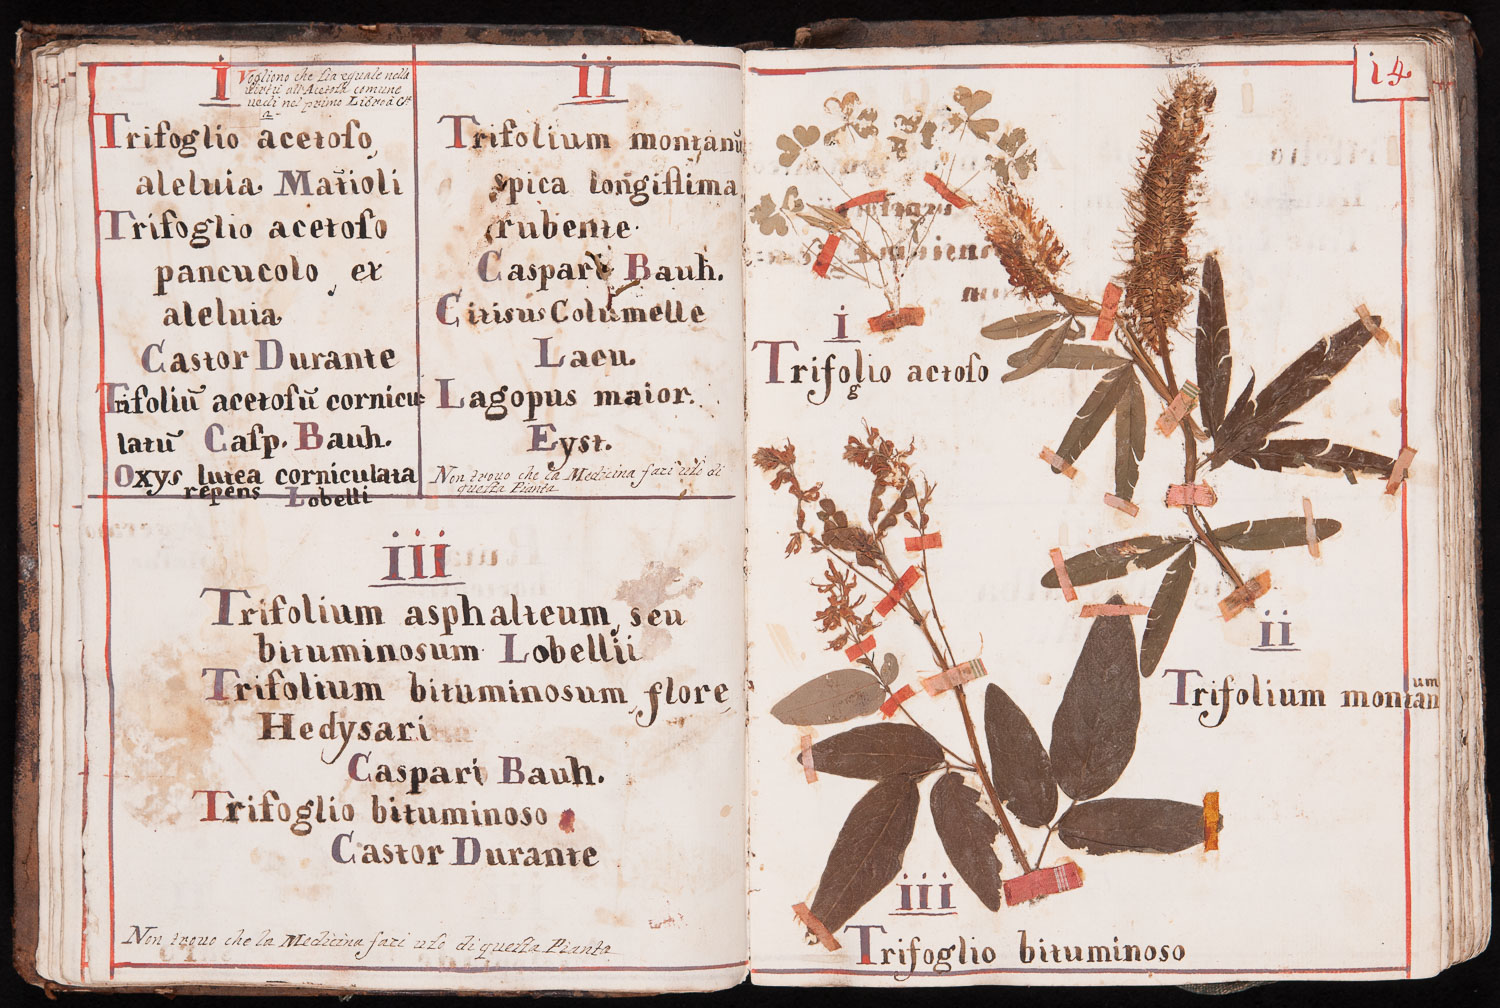 i
Vogliono che sia eguale nella
virtù all'Acetosa comune
vedi nel primo Libro à C.^te
Trifoglio acetoso
aleluia Matioli
Trifoglio acetoso
pancucolo, et
aleluia
Castor Durante
Trifoliũ acetosũ cornicu=
latũ Casp. Bauh.
Oxys lutea corniculata
repens Lobelli
ii
Trifolium montanũ
spica longissima
rubente
Caspari Bauh.
Citisus Columelle
Lacu.
Lagopus maior.
Eyst.
Non trovo che la Medicina faci uso di
questa Pianta
iii
Trifolium asphalteum, seu
bituminosum Lobellii
Trifolium bituminosum, flore
Hedysari
Caspari Bauh.
Trifoglio bituminoso
Castor Durante
Non trovo che la Medicina faci uso di questa Pianta
14
i
Trifoglio actoso
ii
Trifolium montanum
iii
Trifoglio bituminoso